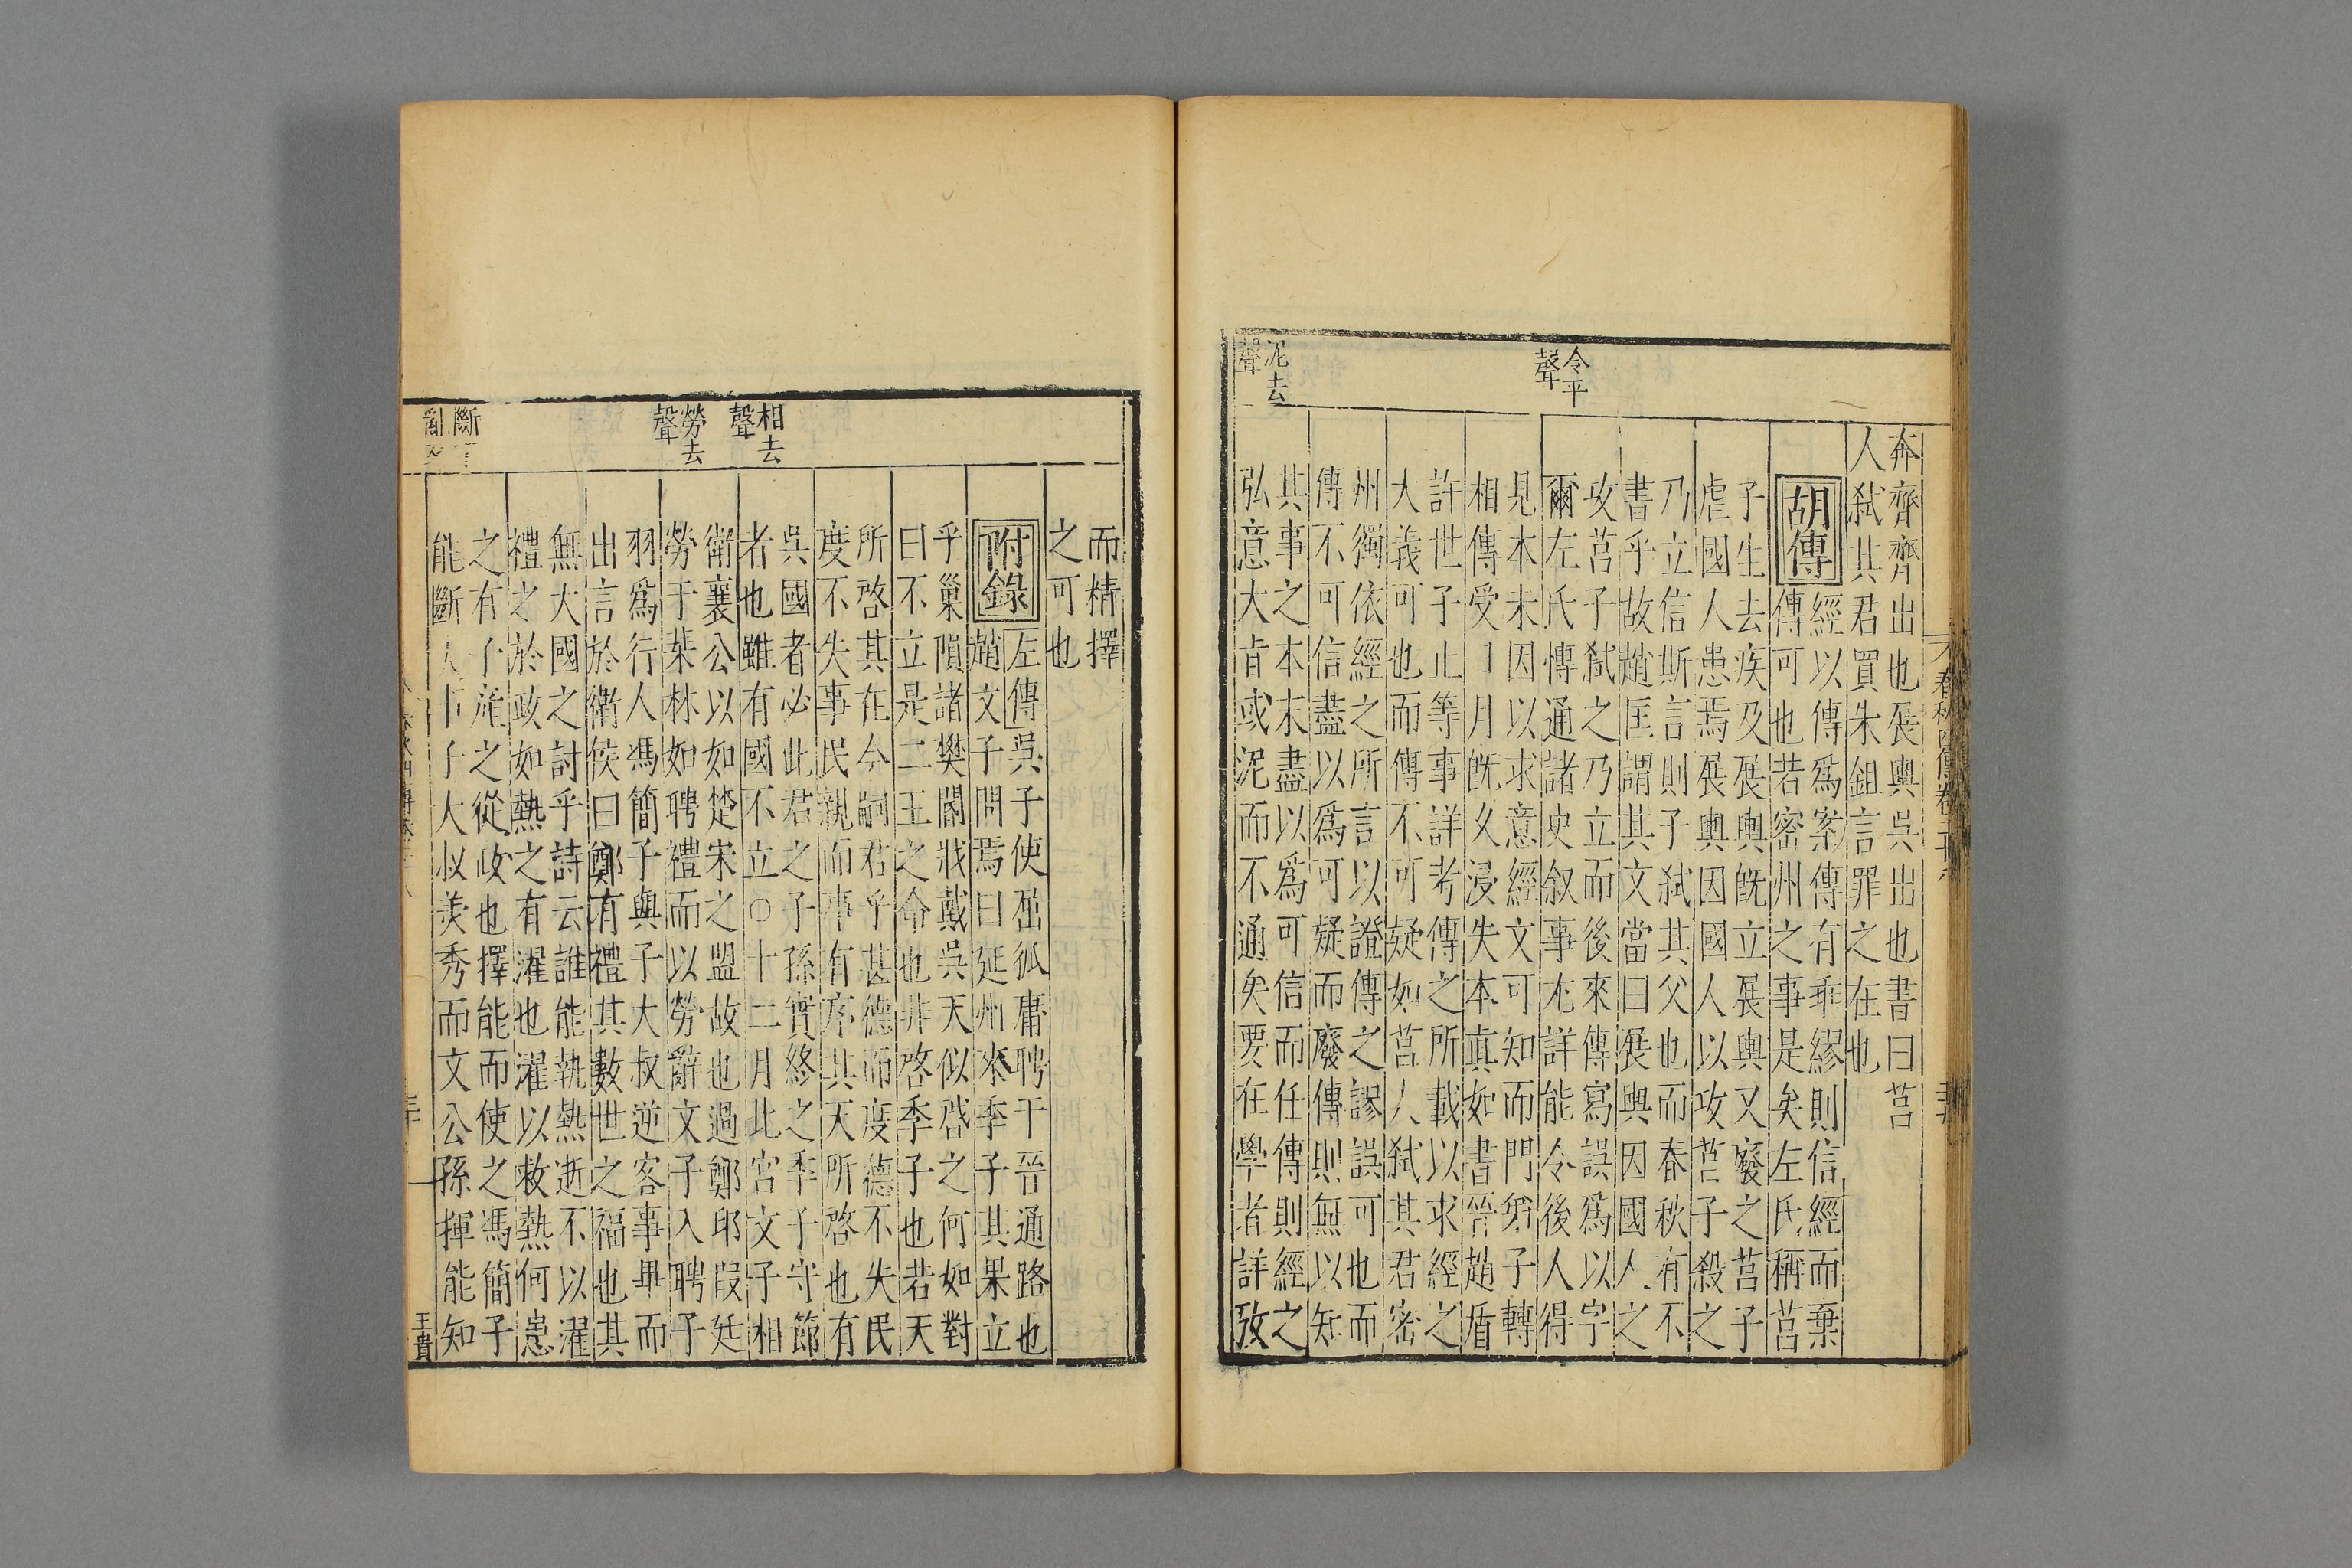 奔齊齊出也展輿吳出也書曰莒
人弒其君買朱鉏言罪之在也
胡傳
經以傳為案傳有乖繆則信經而棄
傳可也若密州之事是矣左氏稱莒
子生去疾及展輿既立展輿又廢之莒子
虐國人患焉展輿因國人以攻莒子殺之
乃立信斯言則子弒其父也而春秋有不
書乎故趙匡謂其文當曰展輿因國人之
攻莒子弒之乃立而後來傳寫誤為以字
爾左氏傳通諸史叙事尤詳能令後人得
見本末因以求意經文可知而門弟子轉
相傳受日月既久浸失本真如書晉趙盾
許世子止等事詳考傳之所載以求經之
大義可也而傳不可疑如莒人弒其君密
州獨依經之所言以證傳之謬誤可也而
傳不可信盡以為可疑而廢傳則無以知
其事之本末盡以為可信而任傳則經之
弘意大旨或泥而不通矣要在學者詳攷
令平聲
泥去聲
而精擇
之可也
附錄
左傳
吳子使屈狐庸聘于晉通路也
趙文子問焉曰延州來季子其果立
乎巢隕諸樊閽戕戴吳天似啓之何如對
曰不立是二王之命也非啓季子也若天
所啓其在今嗣君乎甚德而度德不失民
度不失事民親而事有序其天所啓也有
吳國者必此君之子孫實終之季子守節
者也雖有國不立○十二月北宮文子相
衛襄公以如楚宋之盟故也過鄭印段廷
勞于棐林如聘禮而以勞辭文子入聘子
羽為行人馮簡子與子大叔逆客事畢而
出言於衛侯曰鄭有禮其數世之福也其
無大國之討乎詩云誰能執熱逝不以濯
禮之於政如熱之有濯也濯以救熱何患
之有子產之從政也擇能而使之馮簡子
能斷大事子大叔美秀而文公孫揮能知
相去聲
勞去聲
王貴